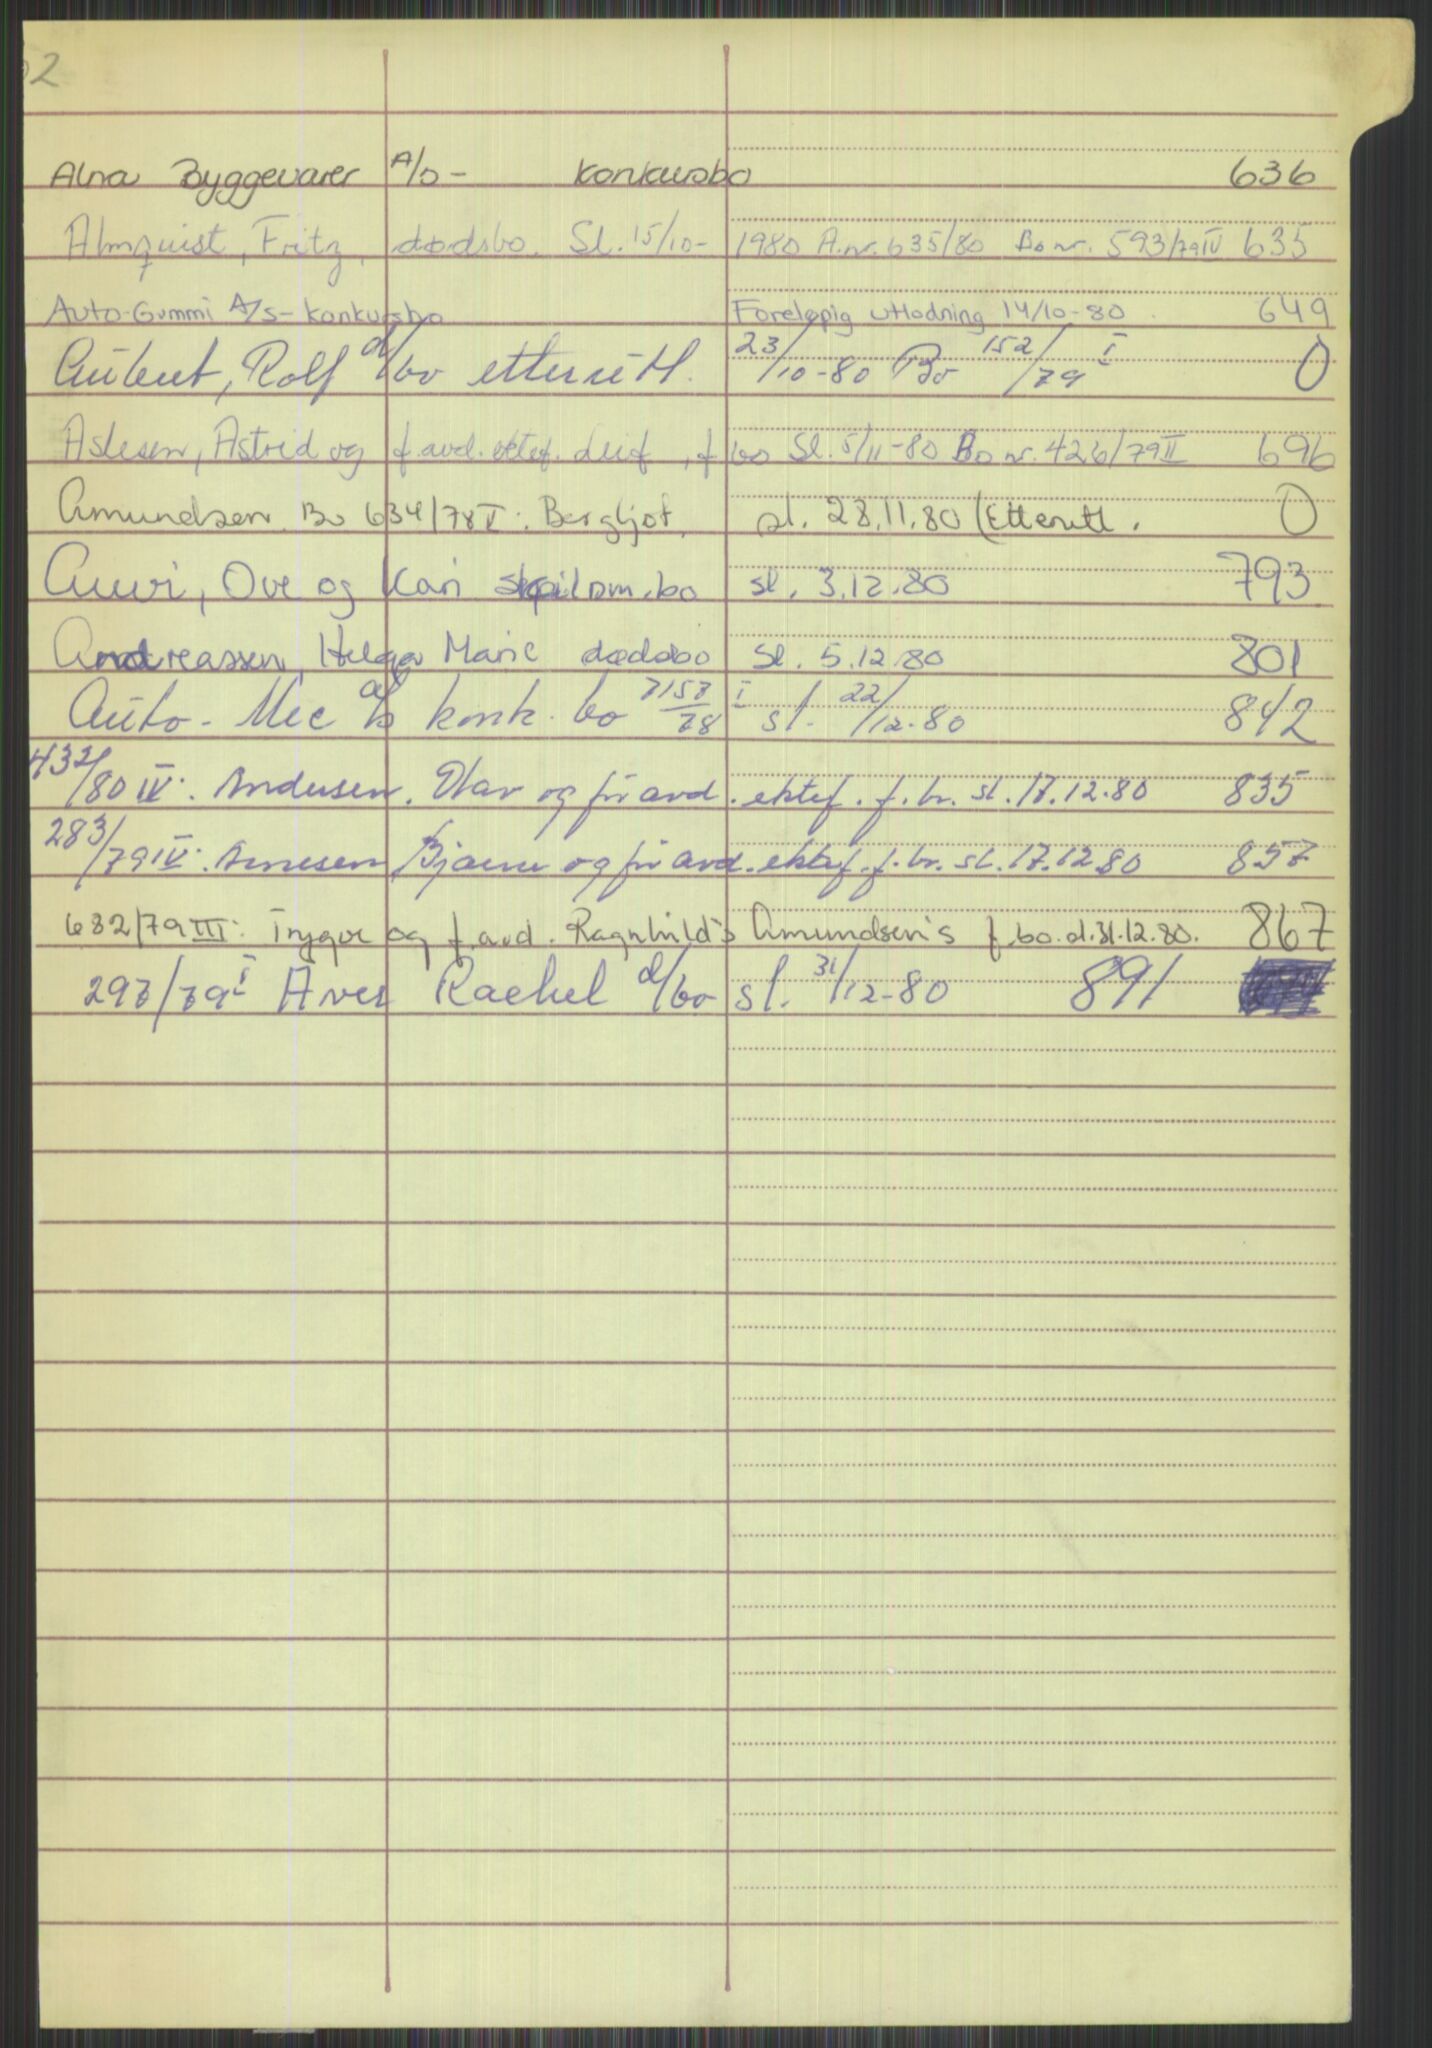 2
Alna Byggevarer A/S - konkursbo 636
Almquist, Fritz, dødsbo. Sl. 15/10- 1980 A.nr. 635/80 Bo nr. 593/79 IV 635
Auto-Gummi A/S - konkursbo Foreløpig utlodning 14/10-80. 649
Aubert, Rolf d/bo etterutl. 23/10-80 Bo 152/79 I 0
Aslesen, Astrid og f.avd. ektef. Leif, f bo Sl. 5/11-80 Bo nr. 426/79 II 696
Amundsen Bo 634/78 V: Bergljot, sl. 28.11.80 (Etterutl. 0
Auvi, Ove og Kari skpilsm.bo sl. 3.12.80 793
Andreassen, Helga Marie dødsbo Sl. 5.12.80 801
Auto-Mec a/s konk. bo 7157/78 I sl. 22/12-80 842
432/80 IV: Andersen. Olav og før avd. ektef. f.bo. sl. 17.12.80 835
283/79 IV: Arnesen Bjarne og før avd. ektef. f.bo. sl. 17.12.80 857
682/79 III: Trygve og f.avd. Ragnhild's Amundsen's f.bo.d.31.12.80. 867
297/79 I Aves Raehel d/bo sl. 31/12-80 891